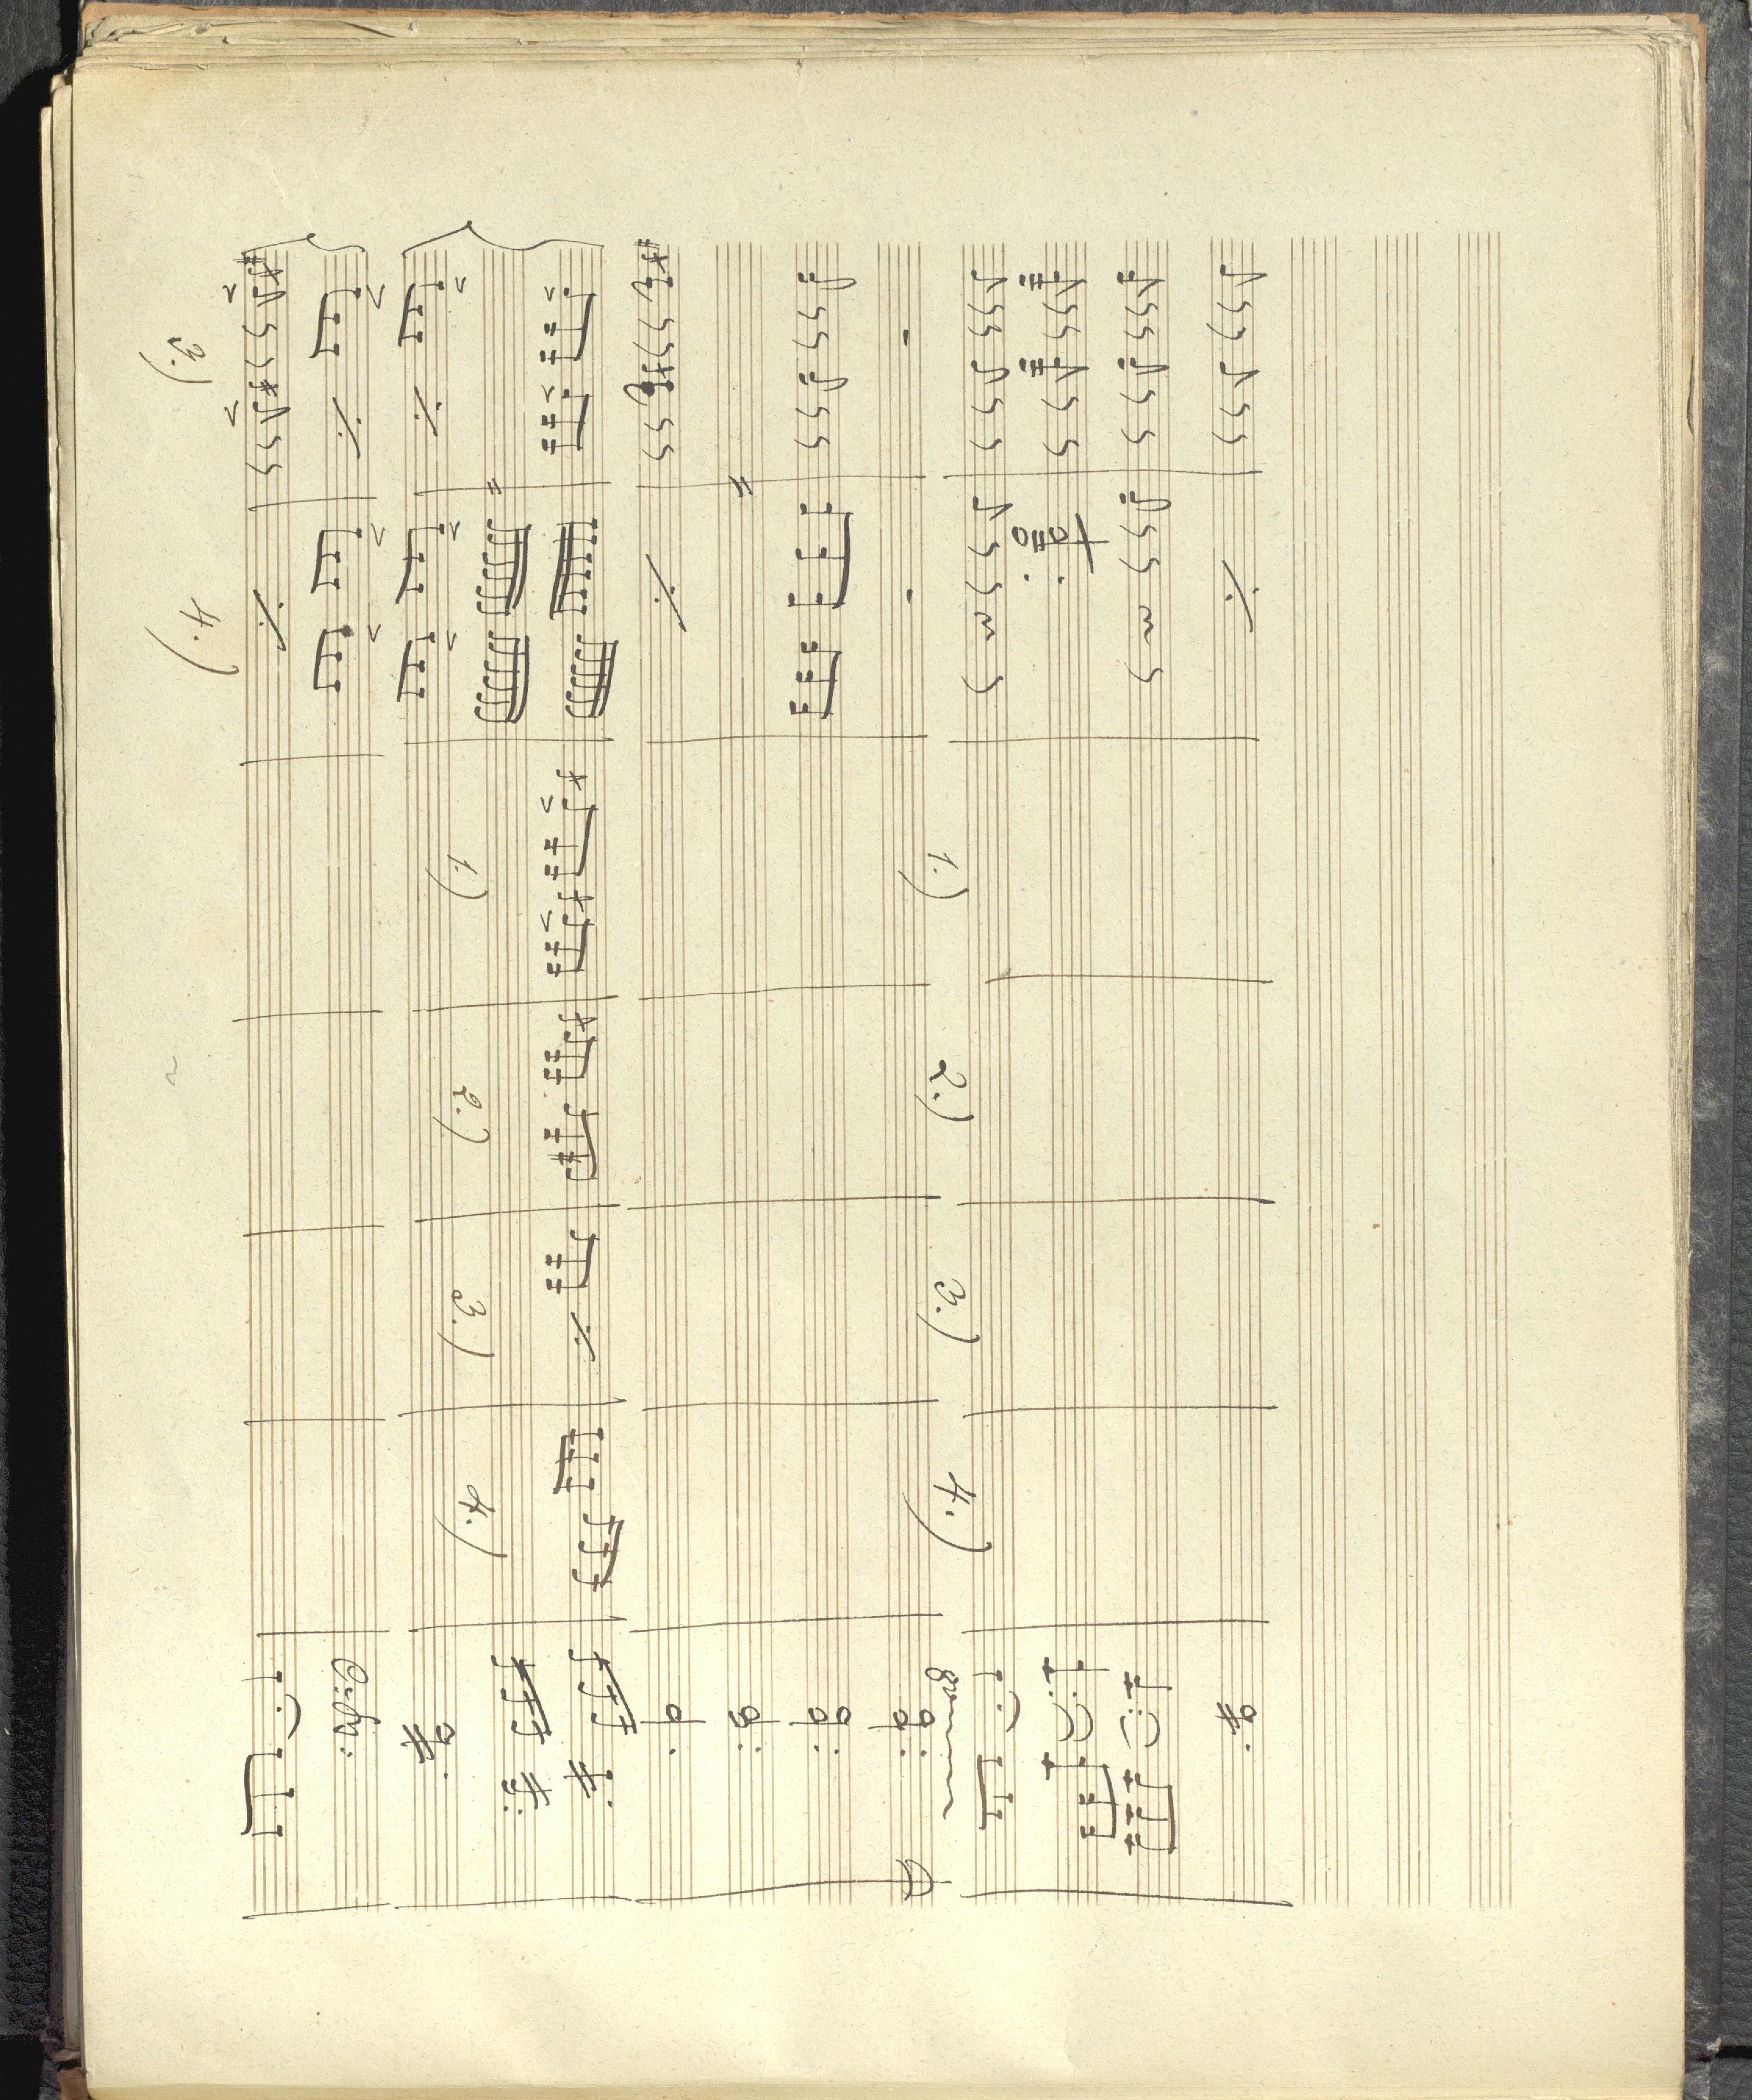 1.) 2.) 3.) 4.) 8
1.) 2.) 3.) 4.)
3.) 4.)